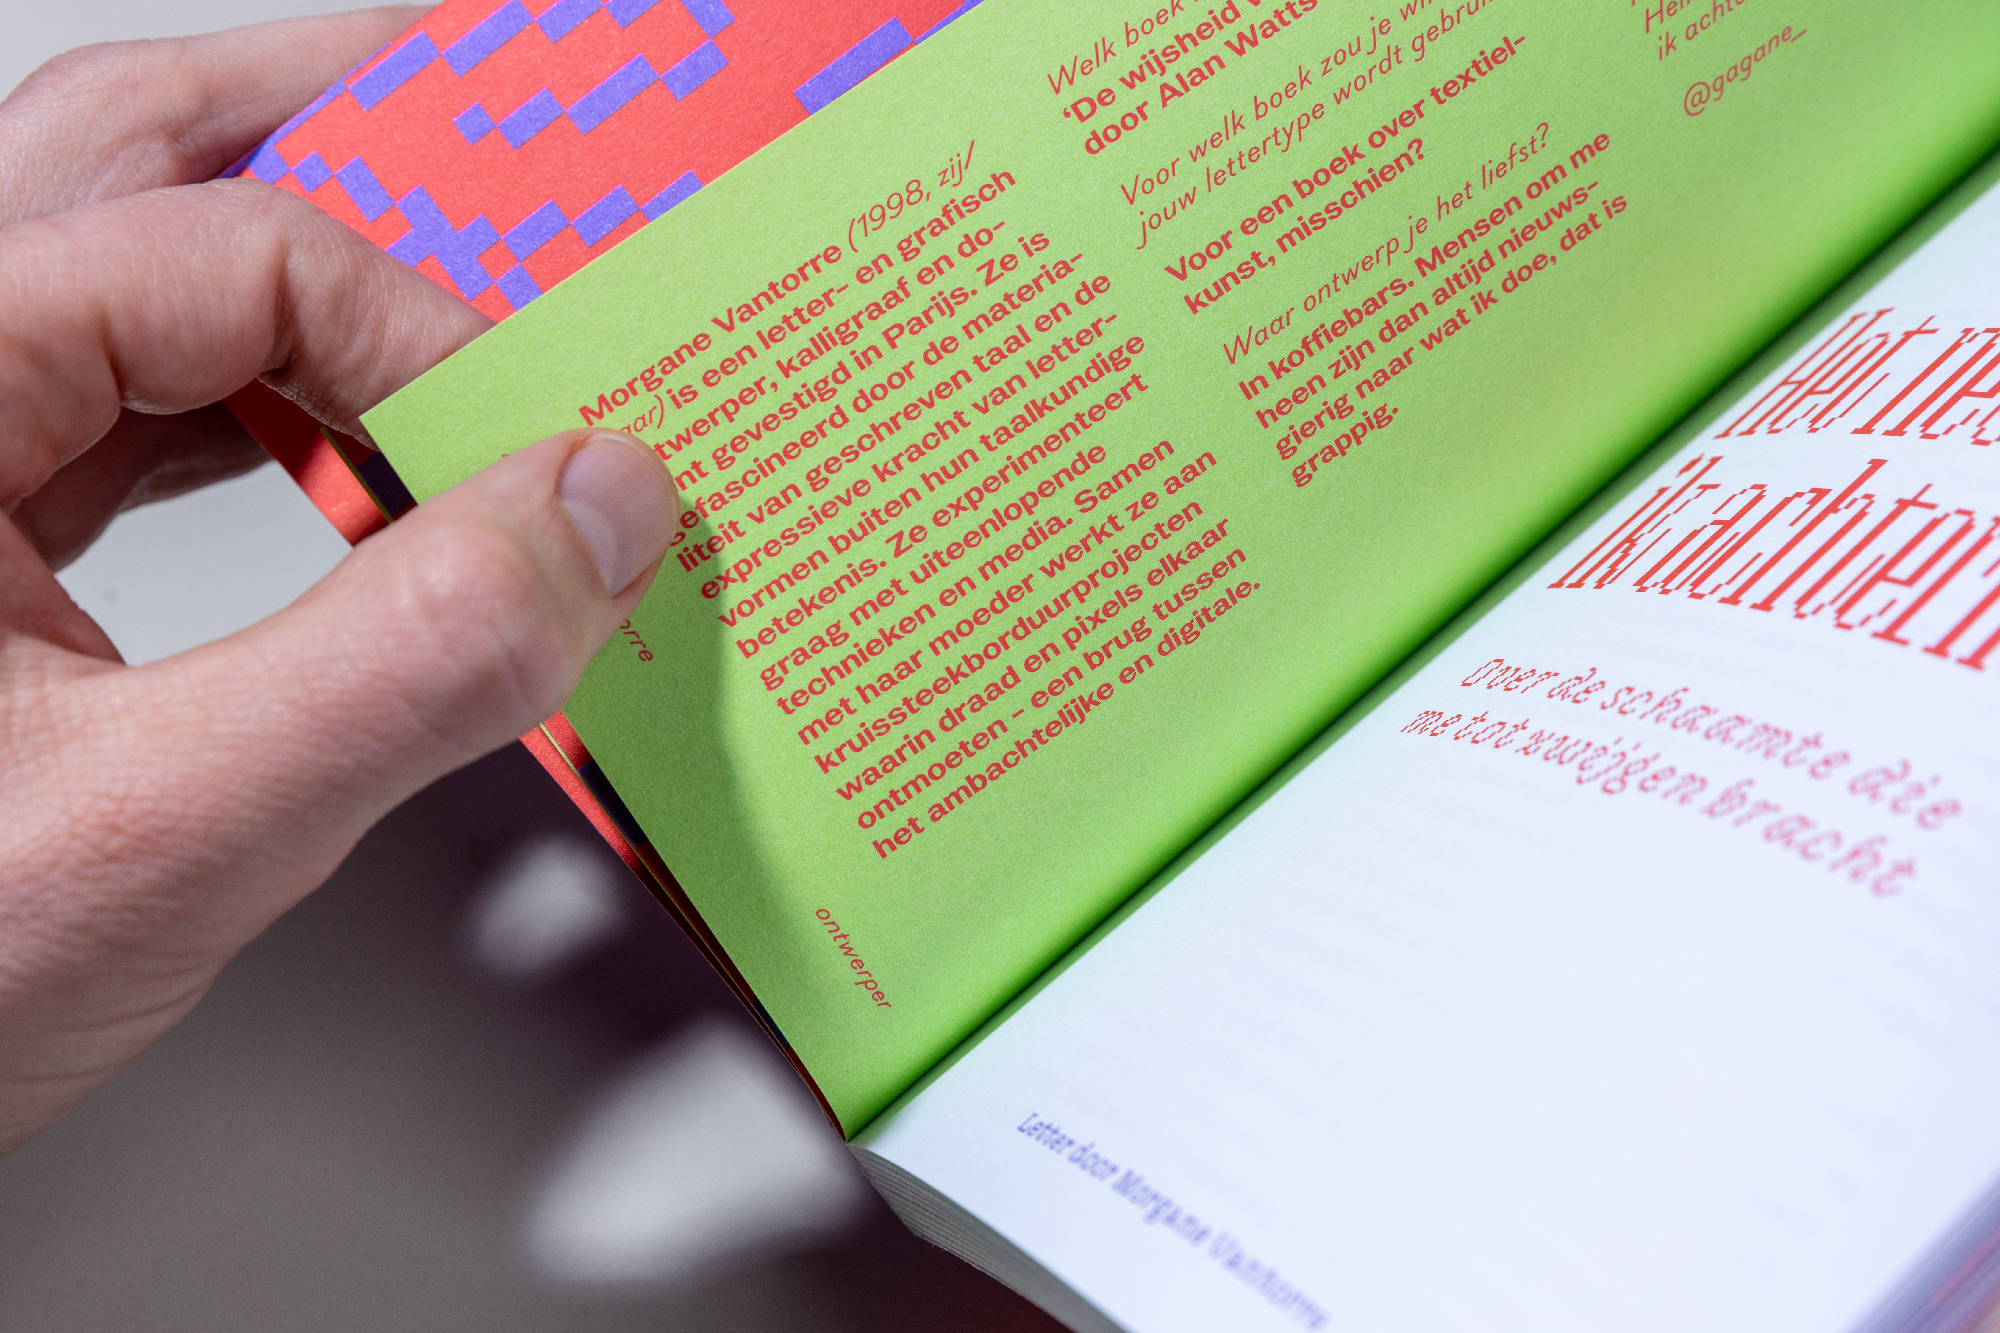 Morgane Vantorre (1998, zij/
aar) is een letter- en grafisch
twerper, kalligraaf en do-
nt gevestigd in Parijs. Ze is
efascineerd door de materia-
liteit van geschreven taal en de
expressieve kracht van letter-
vormen buiten hun taalkundige
betekenis. Ze experimenteert
graag met uiteenlopende
technieken en media. Samen
met haar moeder werkt ze aan
kruissteekborduurprojecten
waarin draad en pixels elkaar
ontmoeten – een brug tussen
het ambachtelijke en digitale.
orre
ontwerper
Welk boek
‘De wijsheid
door Alan Watts
Voor welk boek zou je
jouw lettertype wordt
Voor een boek over textiel-
kunst, misschien?
Waar ontwerp je het liefst?
In koffiebars. Mensen om me
heen zijn dan altijd nieuws-
gierig naar wat ik doe, dat is
grappig.
ik
@gagane_
Het
ik achter
over de schaamte die
me tot zwijgen bracht
Letter door Morgane Vantorre